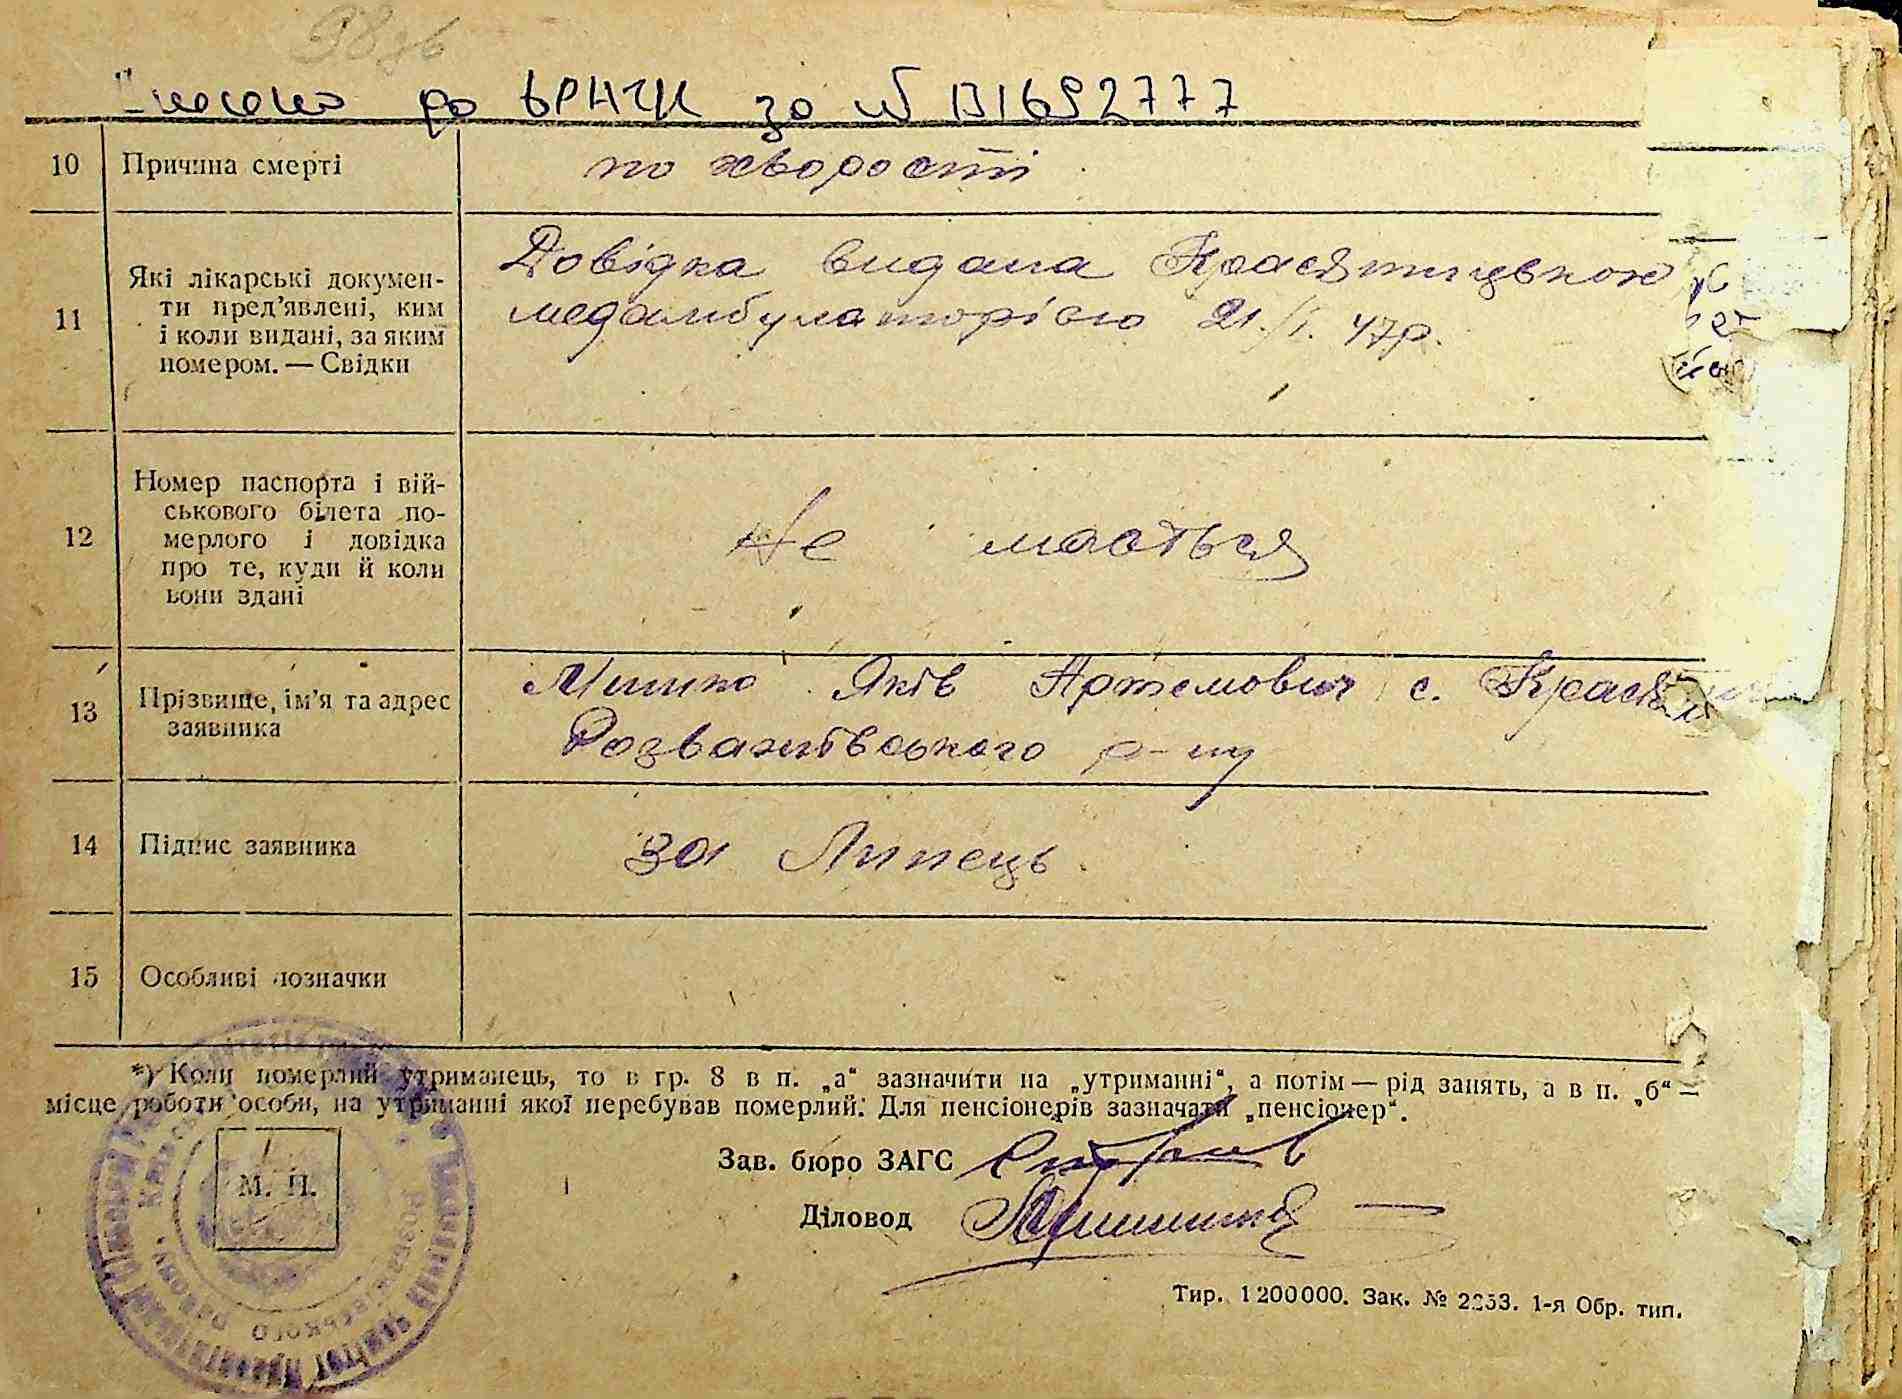 98зв
до ЬРНЧК за №
10 Причина смерті по хворості
11 Які лікарські докумен-
ти пред'явлені, ким
і коли видані, за яким
номером. — Свідки
Довідка видана Красятицькою
медамбулаторією 21./I. 47р.
12 Номер паспорта і вій-
ськового білета по-
мерлого і довідка
про те, куди й коли
вони здані
Не мається
13 Прізвище, ім'я та адрес
заявника
Яків Артемович с.
Розважівського р-ну
14 Підпис заявника за Липець
15 Особливі позначки
*) Коли померлий утриманець, то в гр. 8 в п. „а“ зазначити на „утриманні“, а потім — рід занять, а в п. „б“ —
місце роботи особи, на утриманні якої перебував померлий. Для пенсіонерів зазначати „пенсіонер“.
М. П.
Зав. бюро ЗАГС
Діловод
Тир. 1200000. Зак. № 2253. 1-я Обр. тип.